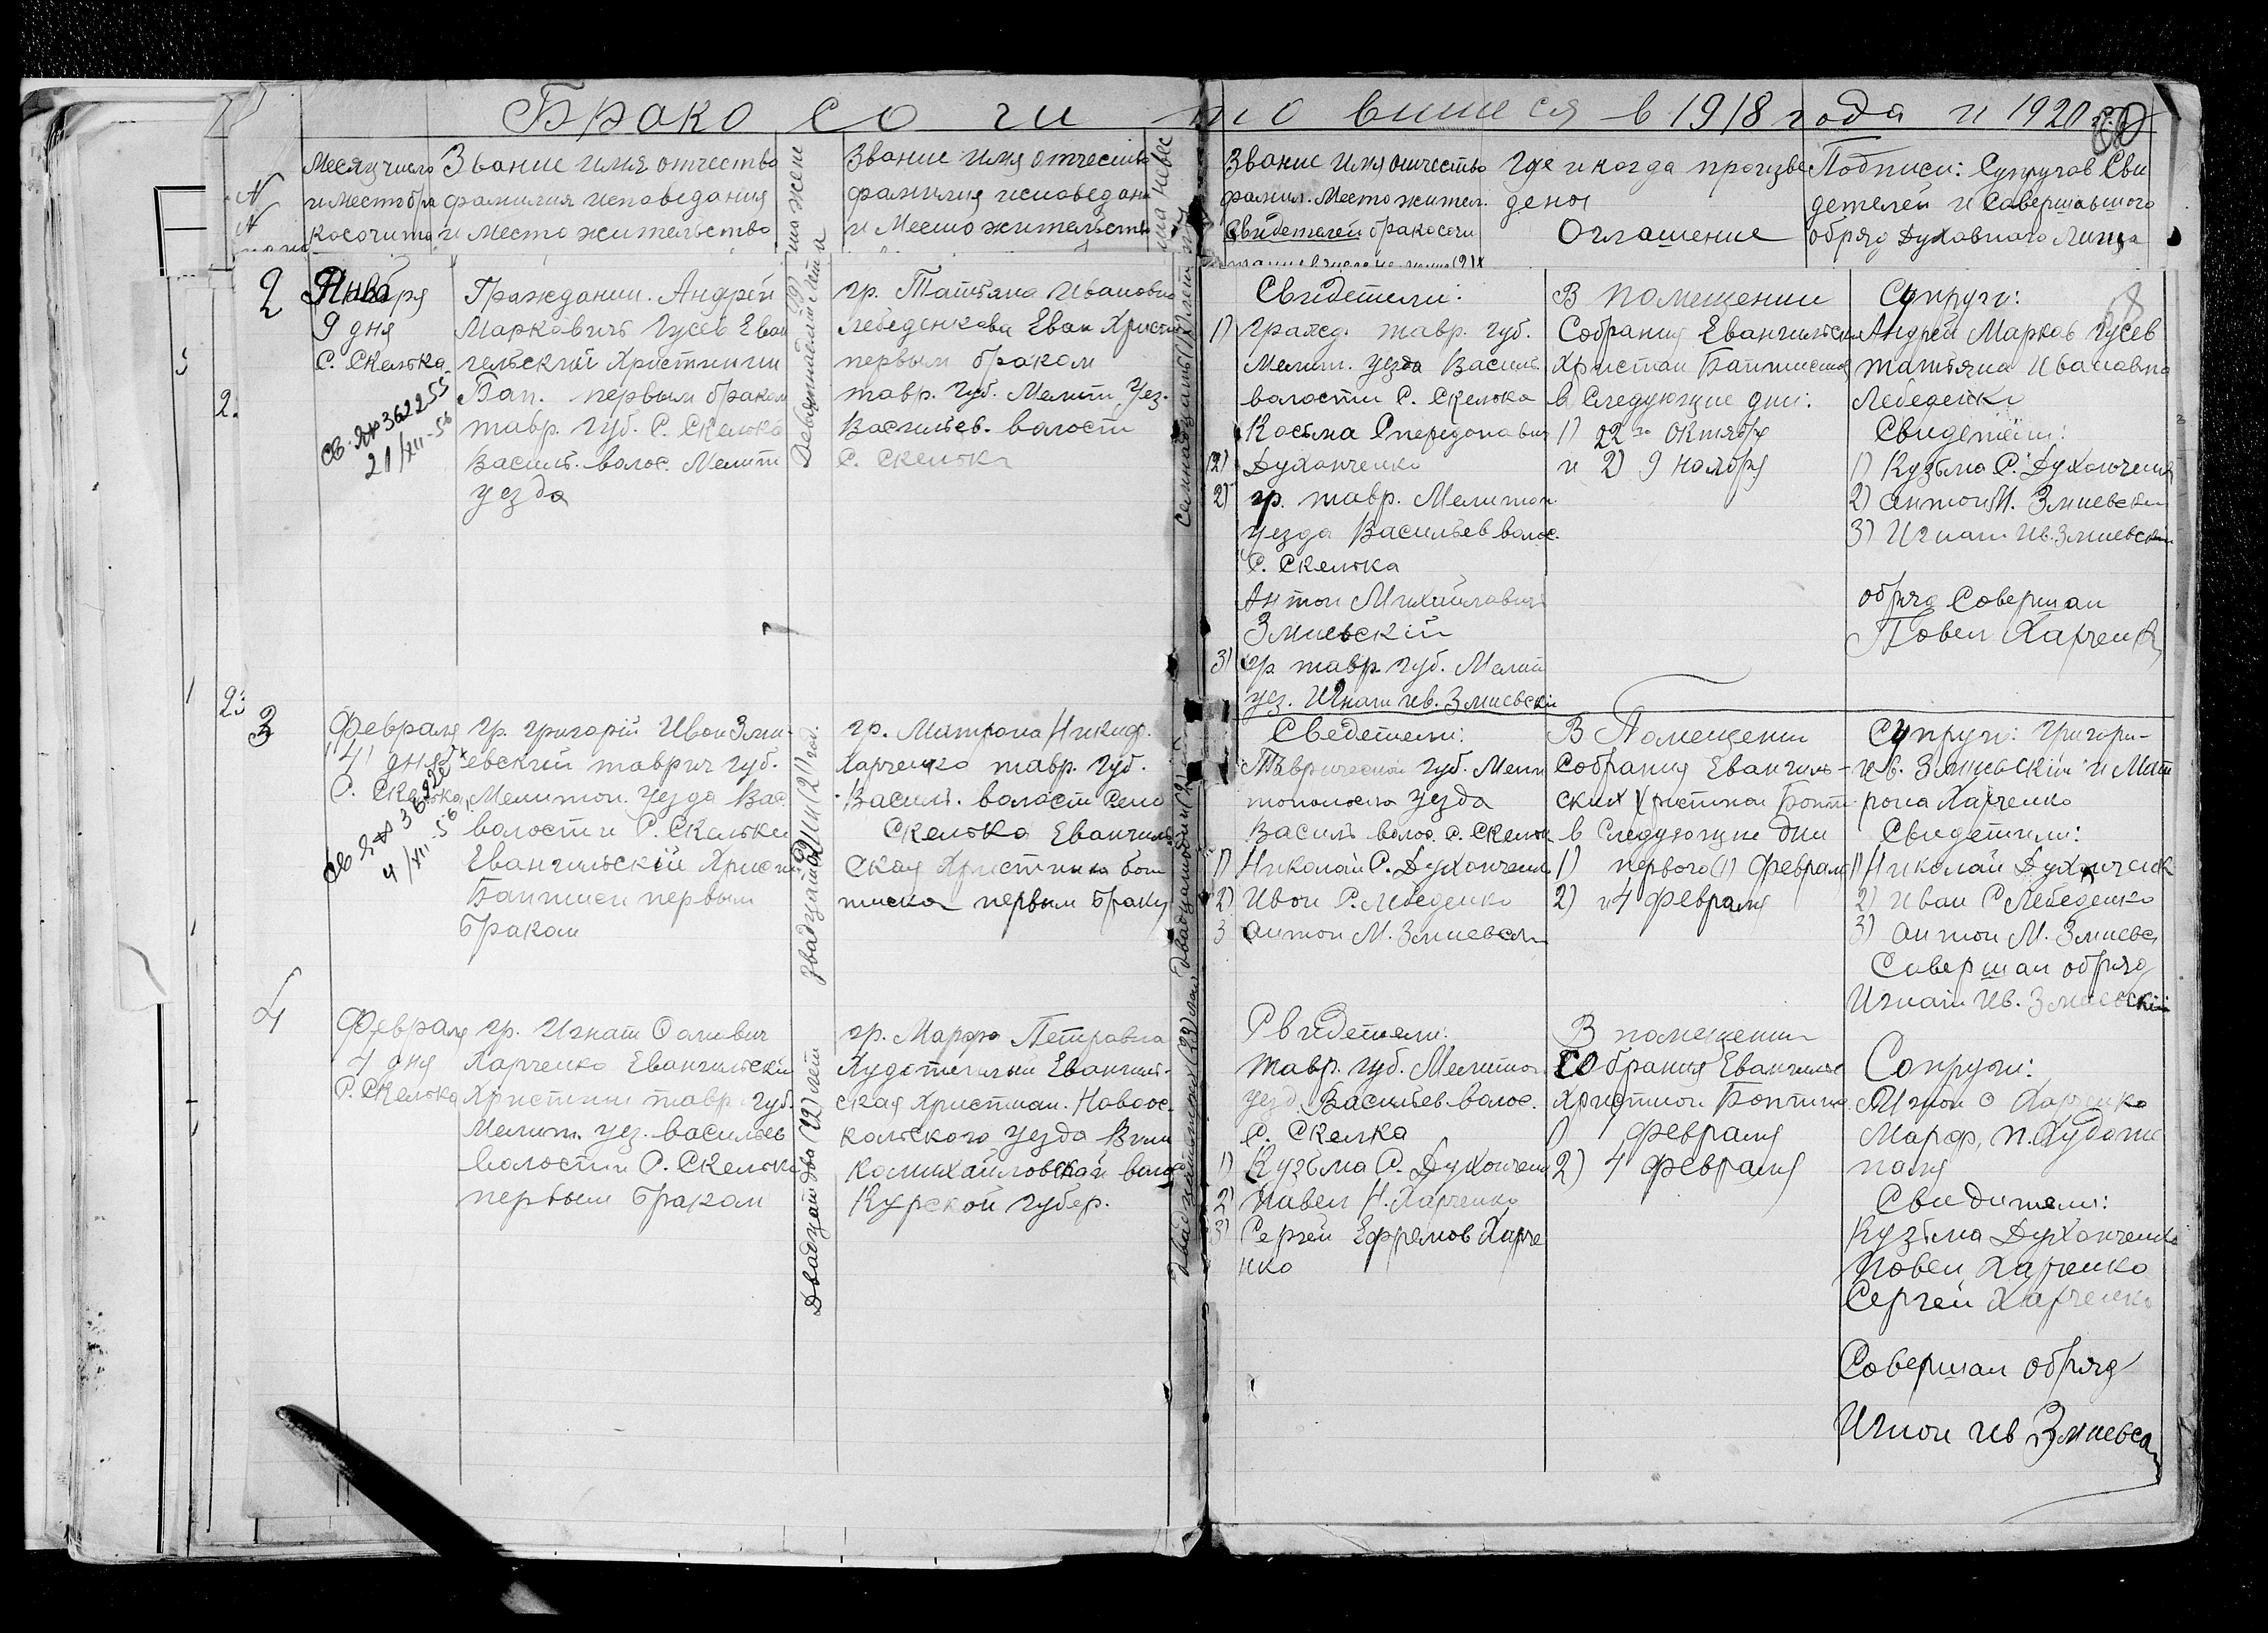 Брако со чи то вшиеся в 1918 года и 1920
N
N
Месяц число
и Место бра
косочита
Звание имя отчество
фамилия исповедания
и Место жительство
Звание имя отчество
фамилия исповедан
и Место жительств
Звание имя отчество
фамил. Место жител.
Свидетелей бракосочи
Где и когда произве
дено
Оглашение
Подписи: Супругов Сви
детелей и Совершавшого
обряд Духовного Лица
2
9 дня
С. Скелька
21/XII-56
Гражданин. Андрей
Маркович Гусев Еван
гельский Христиини
Бап. первым браком
тавр. губ. С. Скелька
Василь. волос. Мелит
уезда
гр. Татьяна Ивановна
Лебеденкова Еван Христи
первым браком
тавр. губ. Мелит. Уез.
Васильев. волости
С. Скелька
Свидетели:
1) гражд. тавр. губ.
Мелит. уезда Василь.
волости С. Скелька
Козьма Спередонавич
2) Духонченко
2) гр. тавр. Мелитоп.
уезда Васильев волос.
С. Скелька
Антон Михайлавич
Змиевскій
3) гр тавр. губ. Мелит
уез. Игнат ив. Змиевскі
В помещении
Собрания Евангильск
Христиан Баптистов
в Следующие дни:
1) 22 го Октября
и 2) 9 ноября
Супруги:
Андрей Марков Гусев
татьяна Ивановна
Лебеденко
Свидетели:
1) Кузьма С. Духонченк
2) антон М. Змиевски
3) Игнат Ив. Змиевскій
обряд Совершал
Павел Харченк
3
Февраля
"4" дня
С. Скелька
4/XII-56
гр. григорій Иван Зми-
евский таврич губ.
Мелитоп. Уезда Вас.
волости С. Скельки
Евангильскій Христи
Баптист первым
браком
гр. Матрона Никиф.
Харченко тавр. губ.
Василь. волости Село
Скелька Евангиль
ская Христиинка бап
тиска первым браку
Сведетели:
Таврической губ. Мели
топольско уезда
Василь волос. С. Скельк
1) Николай С. Духонченк
2) Иван С. Лебеденко
3 антон М. Змиевски
В Помещении
Собрания Евангиль-
ских Христиан Бапт
в следующие дни
1) первого (1) Февраля
2) и 4 февраля
Супруги: Григори-
Ив. Змиевскій и Мат
рона Харченко
Свидетели:
1) Николай Духонченк
2) Иван С Лебеденко
3) антон М. Змиевс
Совершал обряд
Игнат Ив. Змиевскій
4
Февраля
4 дня
С. Скелька
гр. Игнат Оалиевич
Харченко Евангильскій
Христиин тавр. губ.
Мелит. уез. васильев
волости С. Скельки
первым браком
Двадцат два (22) лет
гр. Марфа Петравна
Евангиль-
ская Христиан. Новоос.
кольского уезда
камихайловской вало
Курской губер.
Свидетели:
тавр. губ. Мелитоп
уезд. Васильев. волос.
С. Скелка
1) Кузьма С. Духончен
2) Павел Н. Харченко
3) Сергей Ефремов Харче
нко
В помещении
Собрания Евангильс
Христиан Баптис
1) февраля
2) 4 февраля
Сопруги:
Игнат О Харченко
Марф. П. Худоте
Свидители:
Кузьма Духонченко
Павел Харченко
Сергей Харченко
Совершал обряд
Игнат ив Змиевск